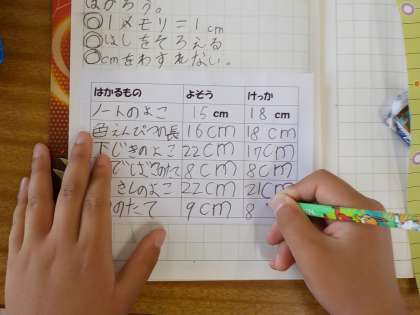 はかろう。
◎1メモリ=1cm
◎はしをそろえる
◎cmをわすれない。
はかるもの よそう けっか
ノートのよこ 15cm 18cm
色えんぴつの長 16cm 18cm
下じきのよこ 22cm 17cm
たて 8cm 8cm
さしのよこ 22cm 21cm
のたて 9cm 8